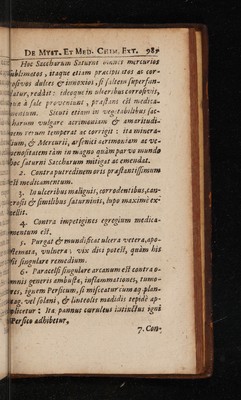 DE MYST. ET MED. CHIM. EXT. 987
Hoc Saccharum Saturni omnes mercurios
sublimatos, itaque etiam præcipitatos ac cor-
rosivos dulces & innoxios, si saltem superfun-
datur, reddit: ideoque in ulceribus corrosivis,
quæ à sale proveniunt, præstans est medica-
mentum. Sicuti etiam in vegetabilibus sac-
charum vulgare acrimoniam & amaritudi-
nem rerum temperat ac corrigit: ita minera-
lium, & Mercurii, arsenici acrimoniam ac ve-
nenositatem tàm in magno quàm parvo mundo
hoc saturni Saccharum mitigat ac emendat.
2. Contra putredinem oris præstantissimum
est medicamentum.
3. In ulceribus malignis, corrodentibus, can-
crosis & similibus saturninis, lupo maximè ex-
cellit.
4. Contra impetigines egregium medica-
mentum est.
5. Purgat & mundificat ulcera vetera, apo-
stemata, vulnera: vix dici potest, quàm his
sit singulare remedium.
6. Paracelsi singulare arcanum est contra o-
mnis generis ambusta, inflammationes, tumo-
res, ignem Persicum, si misceatur cum aq. plan-
tag. vel solani, & linteolis madidis tepidè ap-
plicetur: Ita pannus cæruleus intinctus igni
Persico adhibetur.
7. Con-